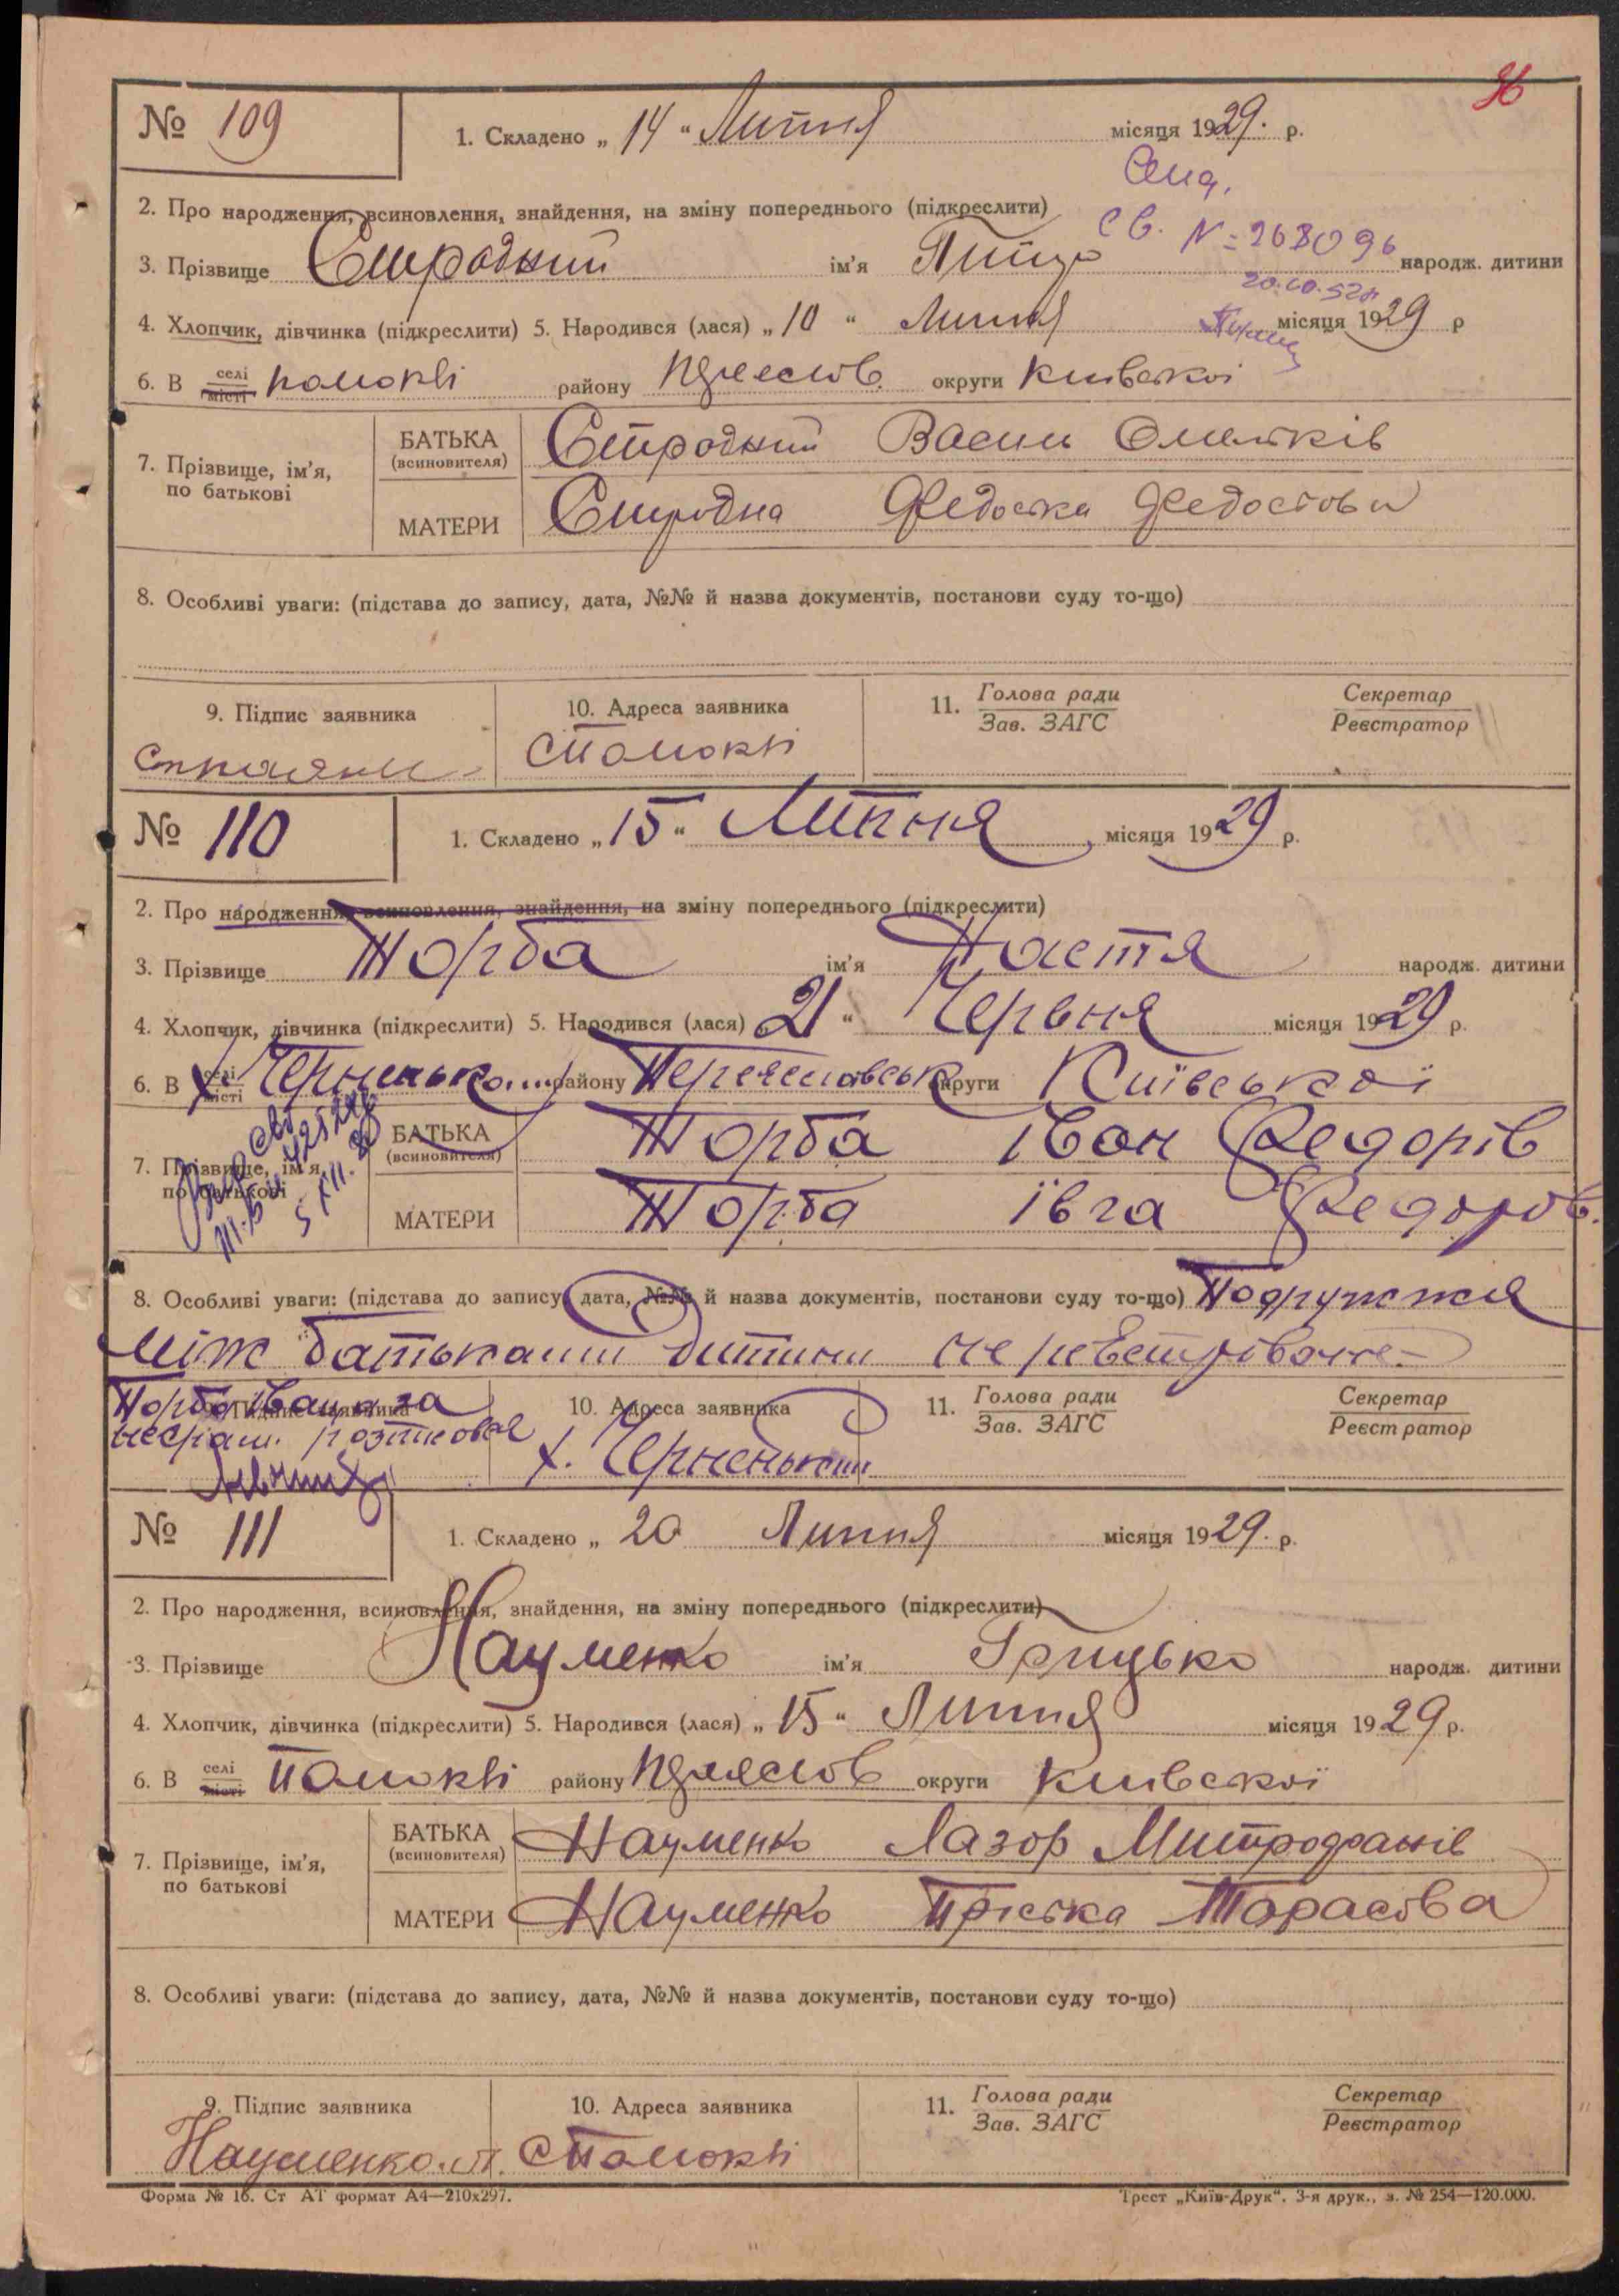 36
№ 109
1. Складено „ 14 “ Липня місяця 1929. р.
2. Про народження, всиновлення, знайдення, на зміну попереднього (підкреслити)
св. N=268096
3. Прізвище ім'я народж. дитини
4. Хлопчик, дівчинка (підкреслити) 5. Народився (лася) „ 10 “ Липня місяця 1929 р
6. В селі місті Помоклі району Переяслов. округи Київської
7. Прізвище, ім'я, по батькові
БАТЬКА (всиновителя) Василь Омельків
МАТЕРИ Федоська Федостови
8. Особливі уваги: (підстава до запису, дата, №№ й назва документів, постанови суду то-що)
9. Підпис заявника
10. Адреса заявника
11. Голова ради Зав. ЗАГС
Секретар Реєстратор
с Помоклі
№ 110
1. Складено „ 15 “ Липня місяця 1929 р.
2. Про народження, всиновлення, знайдення, на зміну попереднього (підкреслити)
3. Прізвище Торба ім'я Настя народж. дитини
4. Хлопчик, дівчинка (підкреслити) 5. Народився (лася) „ 21 “ Червня місяця 1929 р.
6. В селі місті х. Черненьком району Переяславськ округи Київської
7. Прізвище, ім'я, по батькові
БАТЬКА (всиновителя) Торба Іван Федорів
МАТЕРИ Торба Івга Федоров.
8. Особливі уваги: (підстава до запису, дата, №№ й назва документів, постанови суду то-що) Подружжя
між батьками дитини не реєстровано
Торба Івана за
9. Підпис заявника
10. Адреса заявника
11. Голова ради Зав. ЗАГС
Секретар Реєстратор
неграм. розписався
х. Черненький
№ 111
1. Складено „ 20 Липня місяця 1929. р.
2. Про народження, всиновлення, знайдення, на зміну попереднього (підкреслити)
3. Прізвище Науменко ім'я Грицько народж. дитини
4. Хлопчик, дівчинка (підкреслити) 5. Народився (лася) „ 15 “ Липня місяця 1929 р.
6. В селі місті Помоклі району Переяслов округи Київської
7. Прізвище, ім'я, по батькові
БАТЬКА (всиновителя) Науменко Лазор Митрофанів
МАТЕРИ Науменко Пріська Тарасова
8. Особливі уваги: (підстава до запису, дата, №№ й назва документів, постанови суду то-що)
9. Підпис заявника
10. Адреса заявника
11. Голова ради Зав. ЗАГС
Секретар Реєстратор
Науменко с Помоклі
Форма № 16. Ст АТ формат А4—210х297.
Трест „Київ-Друк“. 3-я друк., з. № 254—120.000.